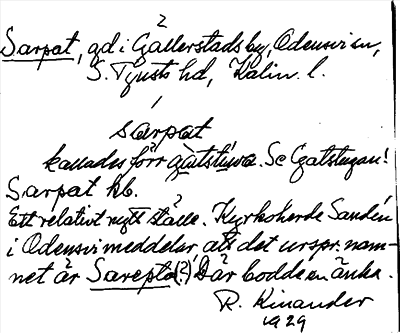 2
Sarpat, gd i Gällerstads by, Odensvi sn,
S. Tjusts hd, Kalm. l.
sárpat
kallades förr gàtstúwa. Se Gatstugan!
Sarpat hb.
Ett relativt nytt ställe. Kyrkoherde Sandén
i Odensvi meddelar att det urspr. nam-
net är Sarepta(?) Där bodde en änka.
R. Kinander
1929